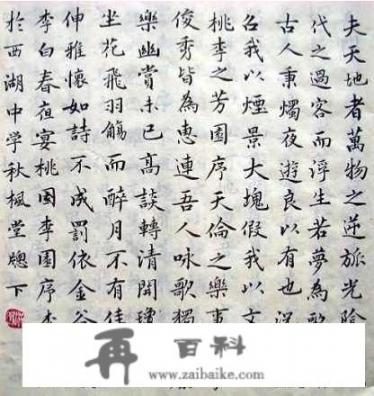 夫天地者萬物之逆旅光陰
代之過客而浮生若夢為歡
古人秉燭夜遊良以有也況
召我以煙景大塊假我以文
桃李之芳園序天倫之樂事
俊秀皆為惠連吾人咏歌獨
樂幽賞未已高談轉清開瓊
坐花飛羽觴而醉月不有佳
伸雅懷如詩不成罰依金谷
李白春夜宴桃園李園序
於西湖中学秋楓堂牕下
再百科
www.zaibaike.com